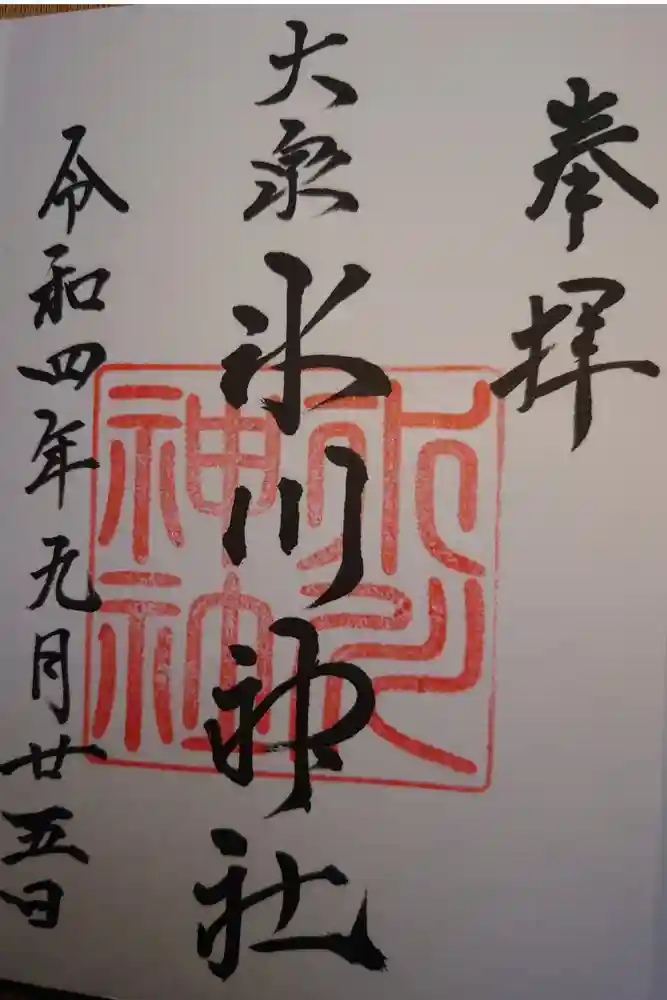 奉拝
大泉氷川神社
令和四年九月廿五日
氷川
神社